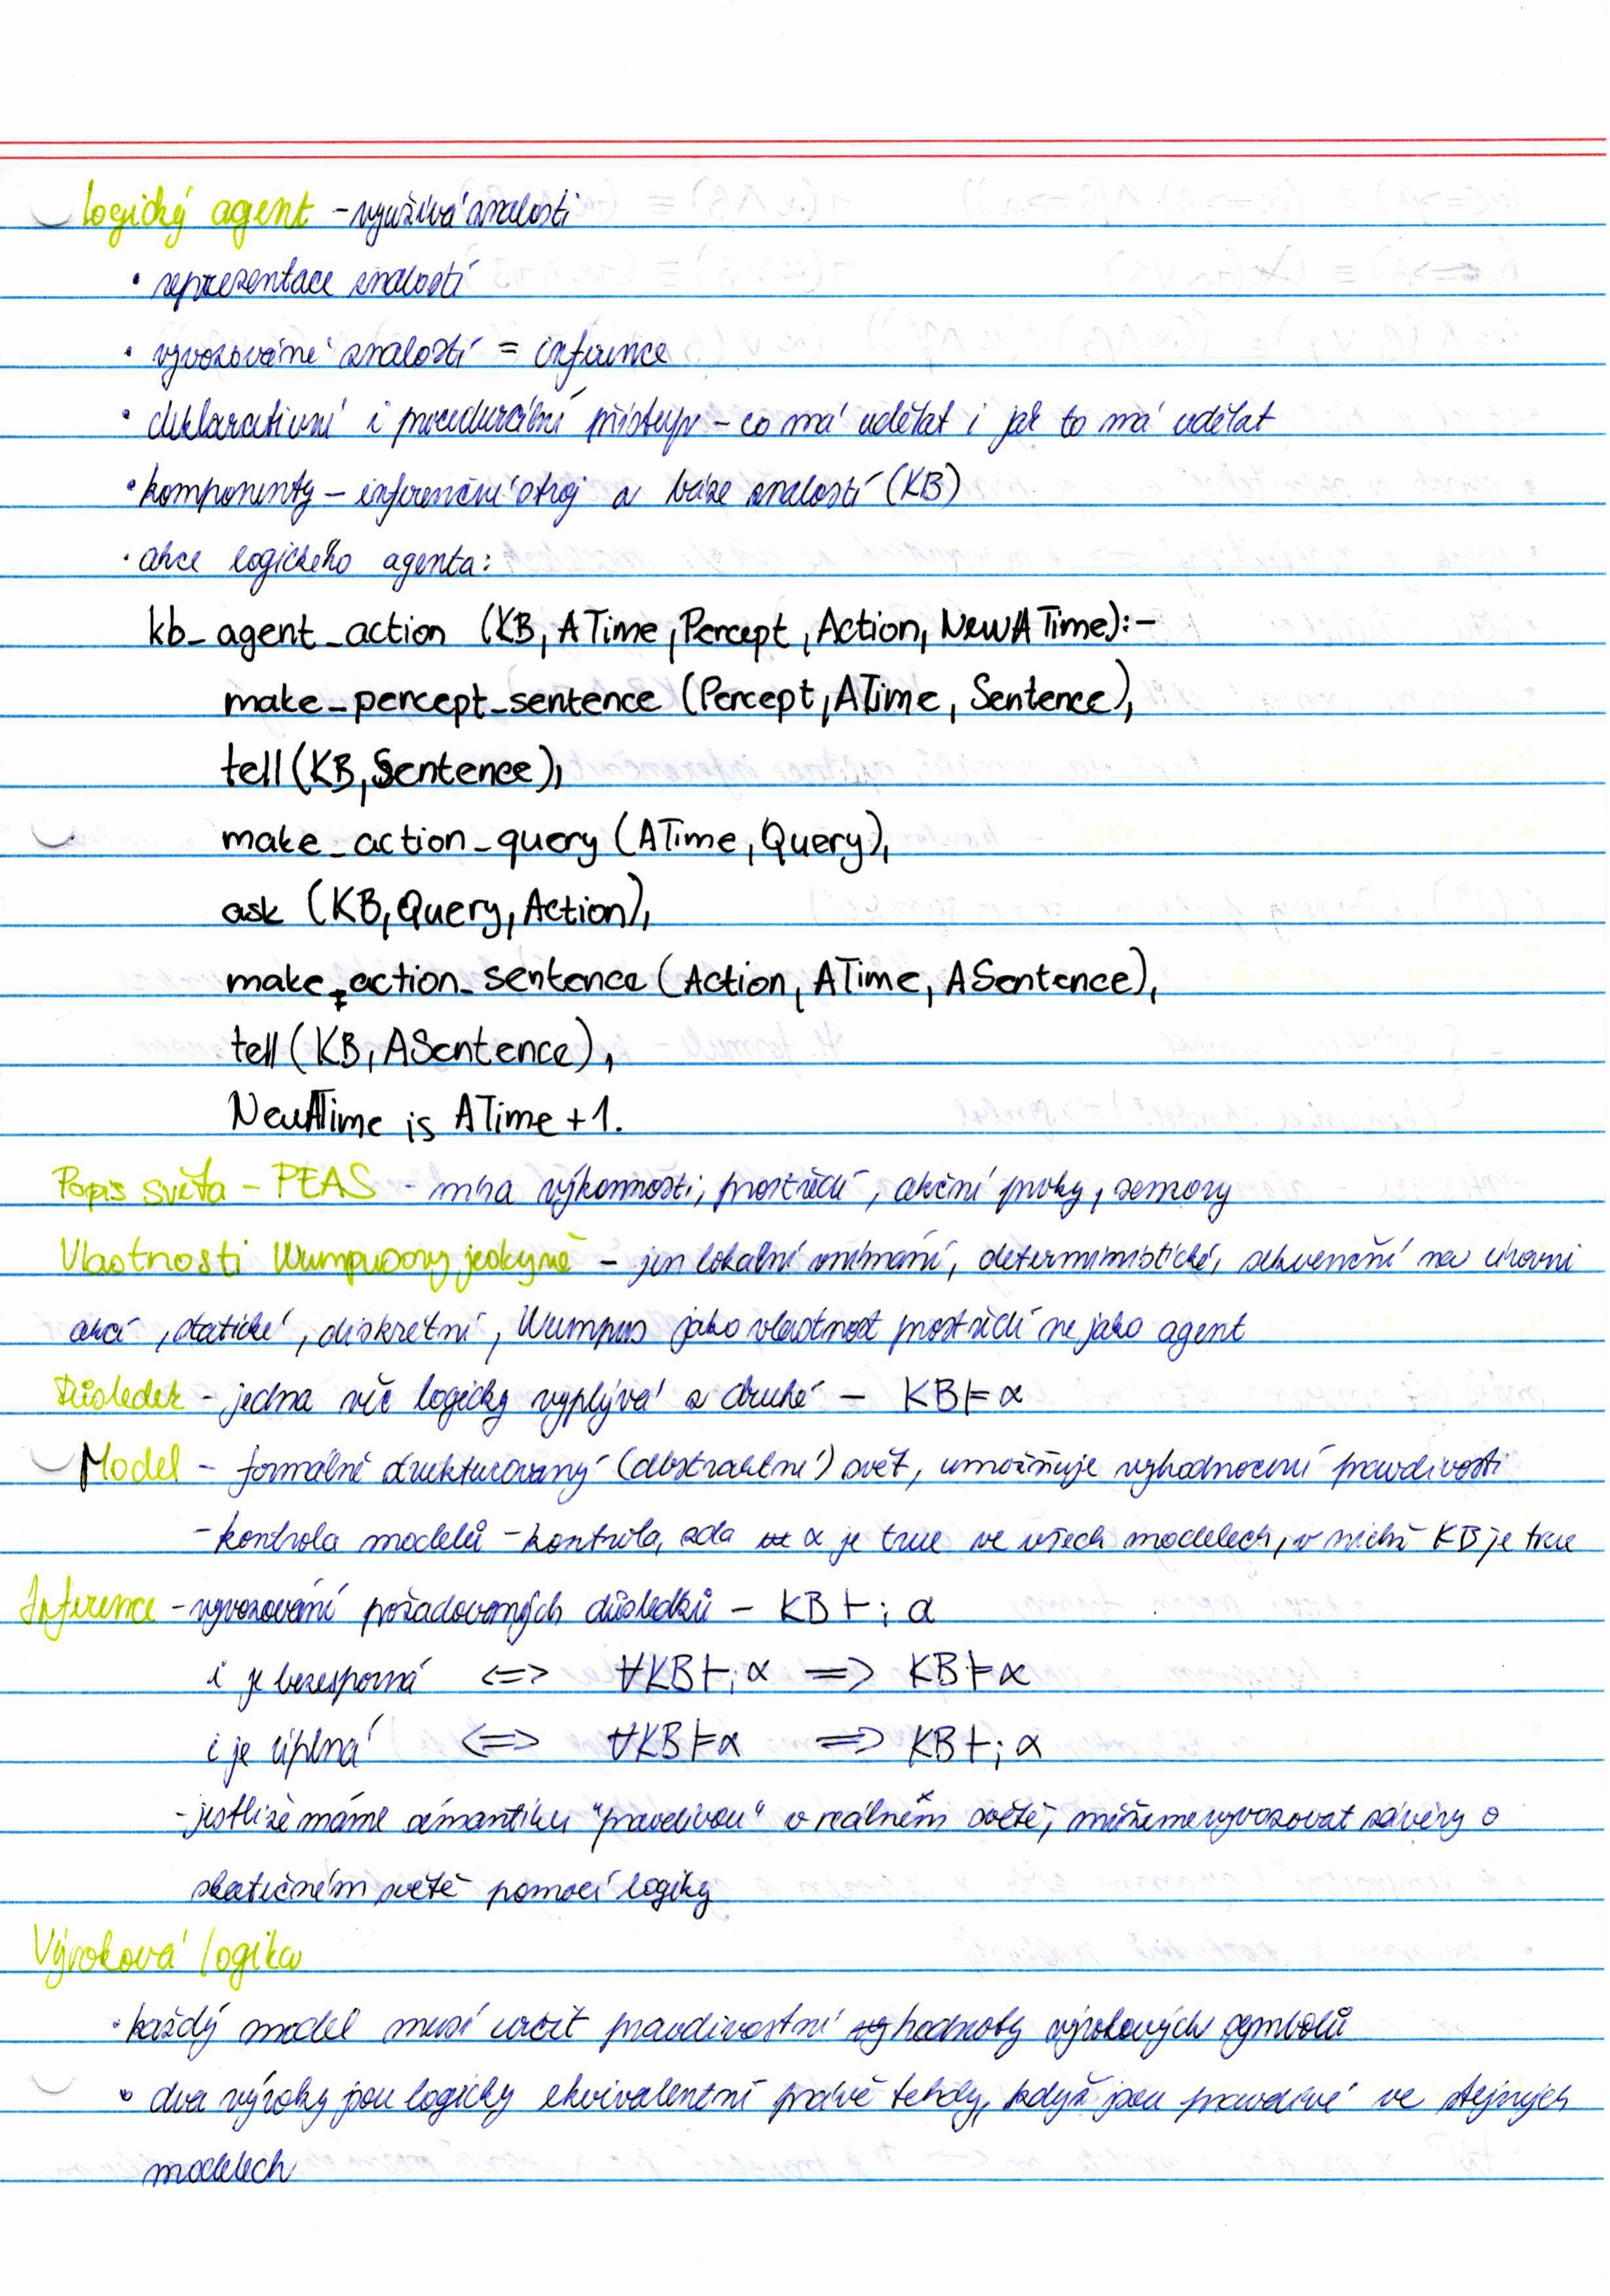 Logický agent – využívá znalosti
• reprezentace znalostí
• vyvozování znalostí = inference
• deklarativní i procedurální přístup – co má udělat i jak to má udělat
• komponenty – inferenční stroj a báze znalostí (KB)
• akce logického agenta:
kb_agent_action (KB, ATime, Percept, Action, NewATime):-
make_percept_sentence (Percept, ATime, Sentence),
tell(KB, Sentence),
make_action_query (ATime, Query),
ask (KB, Query, Action),
make_action_sentence (Action, ATime, ASentence),
tell(KB, ASentence),
NewATime is ATime+1.
Popis světa – PEAS – míra výkonnosti, prostředí, akční prvky, senzory
Vlastnosti Wumpusovy jeskyně – jen lokální vnímání, deterministické, sekvenční na úrovni
akcí, statické, diskrétní, Wumpus jako vlastnost prostředí ne jako agent
Důsledek – jedna věc logicky vyplývá z druhé – KB ⊨ α
Model – formálně strukturovaný (abstraktní) svět, umožňuje vyhodnocení pravdivosti
– kontrola modelů – kontrola, zda α je true ve všech modelech, v nichž KB je true
Inference – vyvozování požadovaných důsledků – KB ⊢ᵢ α
i je bezesporná <=> ∀KB ⊢ᵢ α => KB ⊨ α
i je úplná <=> ∀KB ⊨ α => KB ⊢ᵢ α
– jestliže máme sémantiku "pravdivou" v reálném světě, můžeme vyvozovat závěry o
skutečném světě pomocí logiky
Výroková logika
• každý model musí určit pravdivostní hodnoty výrokových symbolů
• dva výroky jsou logicky ekvivalentní právě tehdy, když jsou pravdivé ve stejných
modelech